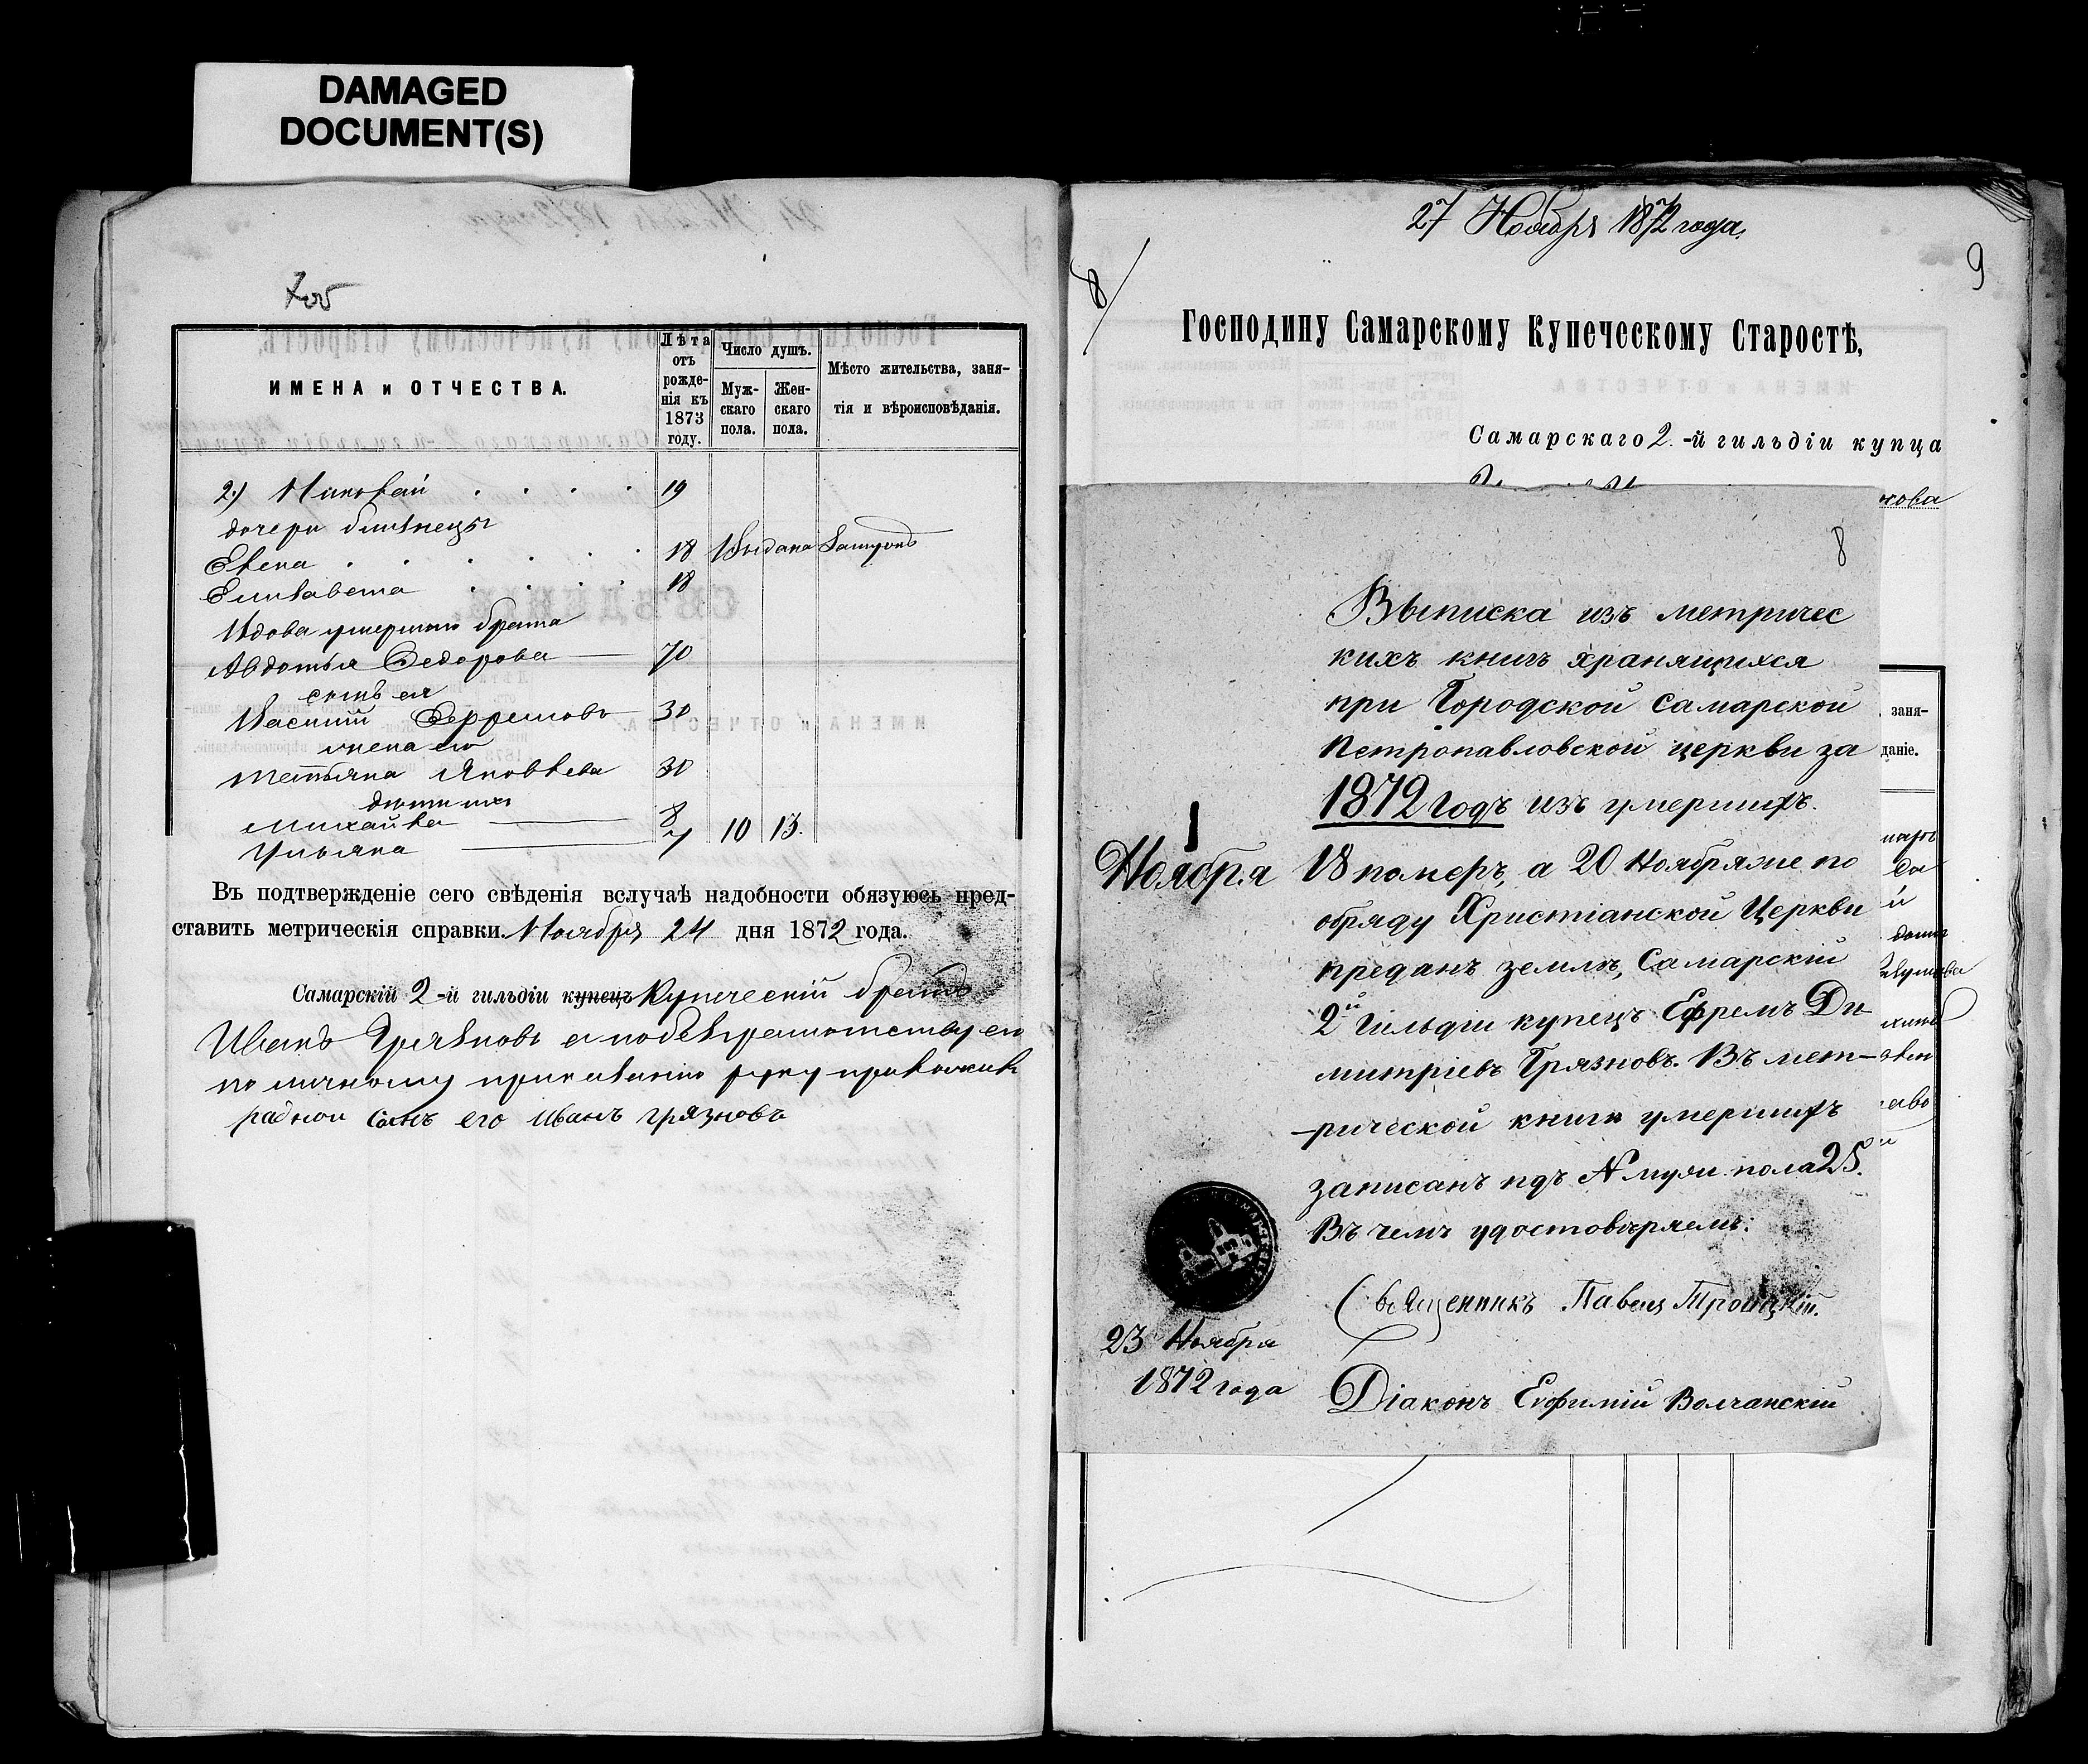 DAMAGED
DOCUMENT(S)
7об
ИМЕНА и ОТЧЕСТВА.
Лѣта отъ рожденія къ 1873 году.
Число душъ.
Мужскаго пола.
Женскаго пола.
Мѣсто жительства, занятія и вѣроисповѣданія.
2) Николай 19
дочери близнецы
Елена 18 Выдана Замужъ
Елизавета 18
Вдова умершаго брата
Авдотья Федорова 70
сынъ ея
Василий Ефремовъ 30
жена его
Татьяна Яковлева 30
дети ихъ
Михайла 8
Ульяна 7 10 13.
Въ подтвержденіе сего свѣденія вслучаѣ надобности обязуюсь пред-
ставить метрическія справки. Ноября 24 дня 1872 года.
Самарскій 2-й гильдіи купецъ Купеческій братъ
Иванъ Грязновъ а по безграмотству его
по личному прошению руку приложилъ
радной Сынъ его иванъ грязновъ
27 Ноября 1872 года.
8
9
Господину Самарскому Купеческому Старостѣ,
Самарскаго 2.-й гильдіи купца
8
Выписка изъ метричес
кихъ книгъ хранящихся
при Городской Самарской
Петропавловской церкви за
1872 годъ изъ умершихъ.
Ноября 18 померъ, а 20 Ноября же по
обряду Христіанской Церкви
преданъ землѣ, Самарскій
2й Гильдіи купецъ Ефремъ Ди
митріевъ Грязновъ. Въ мет-
рической книгѣ умершихъ
записанъ подъ № муж. пола 25.
Въ чемъ удостовѣряемъ:
Священникъ Павелъ Троицкій.
23 Ноября
1872 года
Діаконъ Евфимій Волчанскій
заня-
даніе.